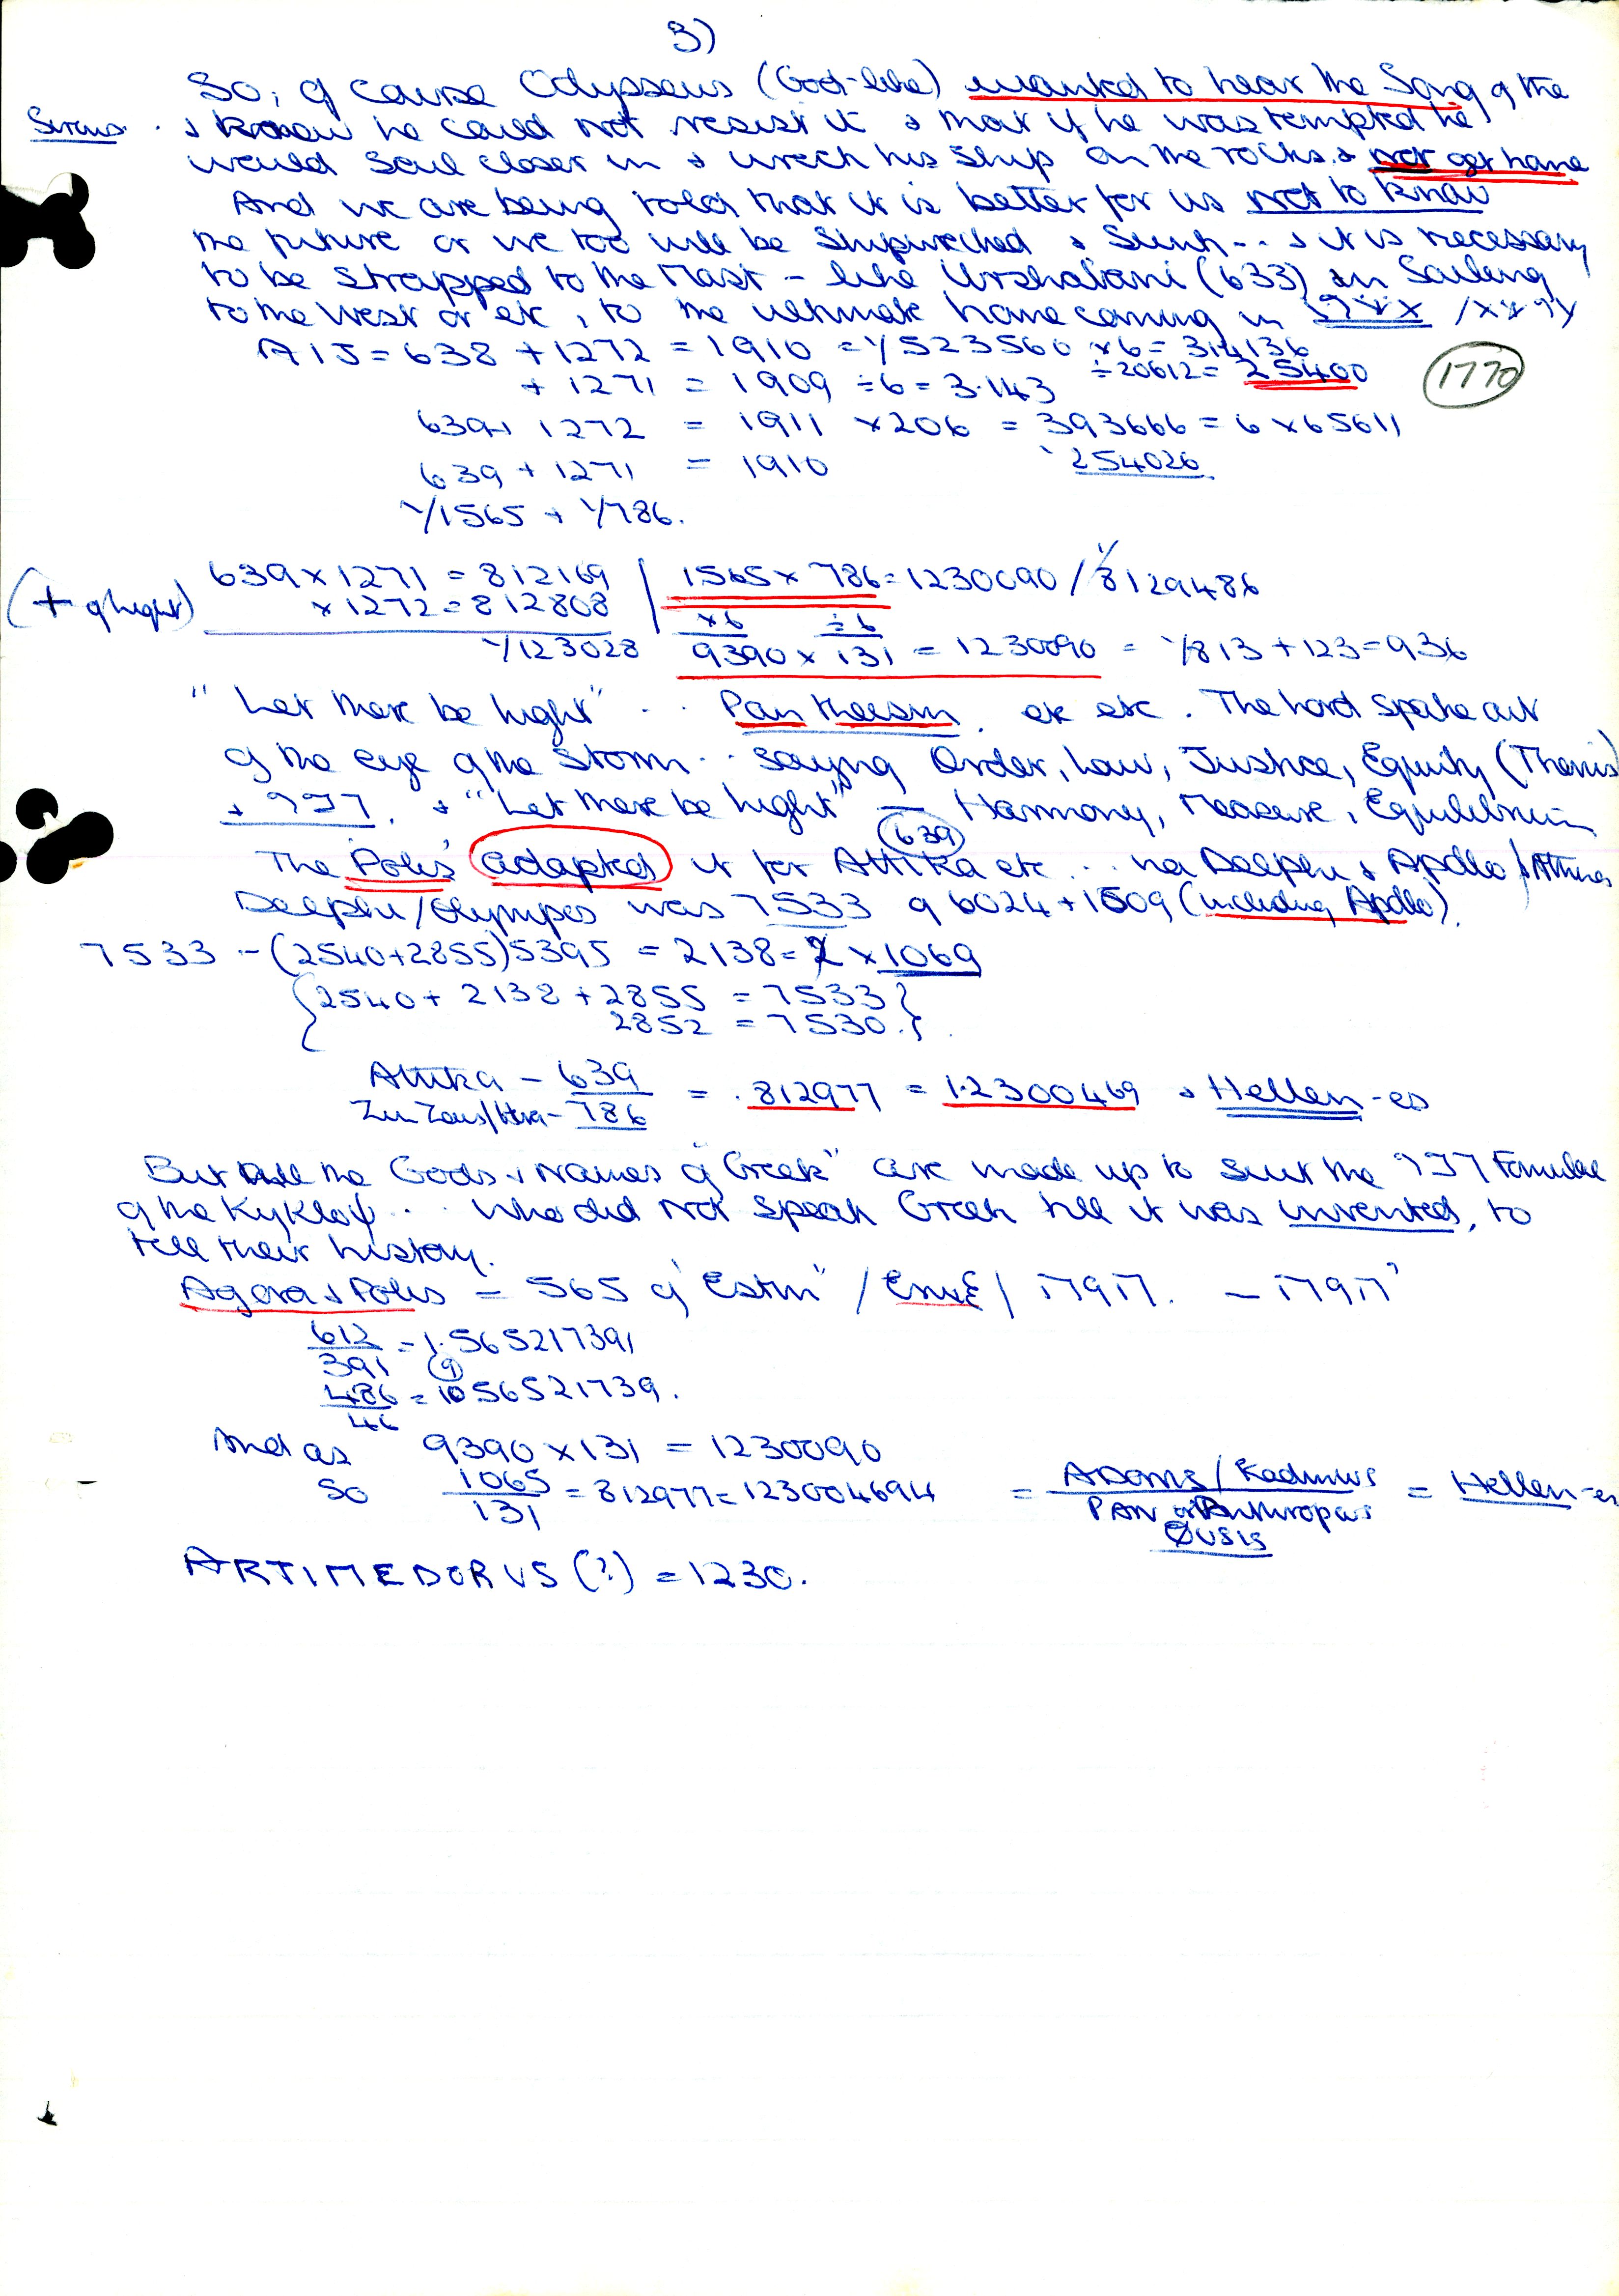 3)
So, of cause Odysseus (God-like) wanted to hear the Song of the
Sirens . & knew he could not resist it & that if he was tempted he
would sail closer in & wreck his ship on the rocks. & not get home
And we are being told that it is better for us not to know
the future or we too will be Shipwrecked & Sunk .. & it is necessary
to be strapped to the Mast - like Urshabani (633) in Sailing
to the West or etc, to the ultimate home coming in
A15 = 638 + 1272 = 1910 = 1/523560 x 6 = 314136
÷ 20612 = 25400
1770
+ 1271 = 1909 ÷ 6 = 3.143
639 + 1272 = 1911 x 206 = 393666 = 6 x 65611
639 + 1271 = 1910 254026
1/1565 + 1/786.
(+ of light) 639 x 1271 = 812169 | 1565 x 786 = 1230090 / 1/8129486
x 1272 = 812808 x6 ÷6
1/123028 9390 x 131 = 1230090 = 1/813 + 123 = 936
"Let there be light" .. Pan theism. etc etc. The Lord spake out
of the eye of the Storm .. saying Order, Law, Justice, Equity (Themis)
& "Let there be light" — Harmony, Measure, Equilibrium
639
The 'Polis' adapted it for Attika etc ... via Delphi & Apollo / Athens
Delphi/Olympos was 7533 of 6024 + 1509 (including Apollo).
7533 - (2540 + 2855) 5395 = 2138 = 2 x 1069
{2540 + 2138 + 2855 = 7533}
2852 = 7530.}
Attika - 639 = .812977 = 1.2300469 & Hellen-es
Zeus/Hera - 786
But all the Gods & Names of "Greek" are made up to suit the Formulae
of the Kyklos .. who did not speak Greek till it was invented, to
tell their history.
Agora & Polis = 565 of "Estin" /
612 = 1.565217391
391 (9)
486 = 10.56521739.
46
And as 9390 x 131 = 1230090
So 1065 = 812977 = 123004694 = ADAMS / Kadmus = Hellen-es
131 PAN or Anthropus
ØUSIS
ARTIMEDORUS (?) = 1230.